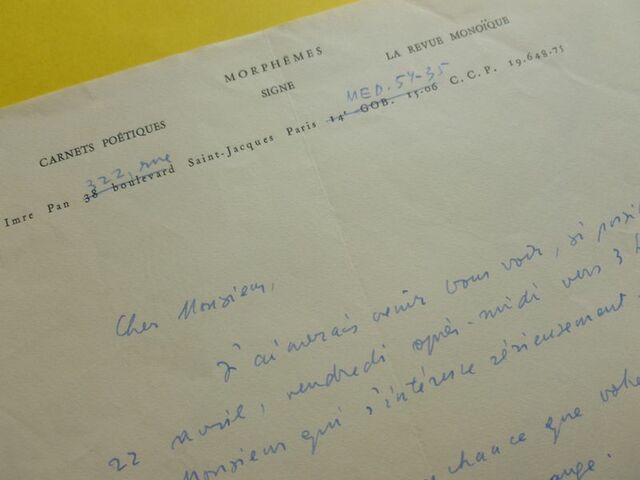 MORPHÈMES
LA REVUE MONOÏQUE
SIGNE
CARNETS POÉTIQUES
322, rue
MED. 54-35
Imre Pan 38 boulevard Saint-Jacques Paris 14e GOB. 15.06 C. C. P. 19.648-75
Cher Monsieur,
J'aimerais venir vous voir, si
22 avril, vendredi après-midi vers 3
Monsieur qui s'intéresse sérieusement
chance que votre